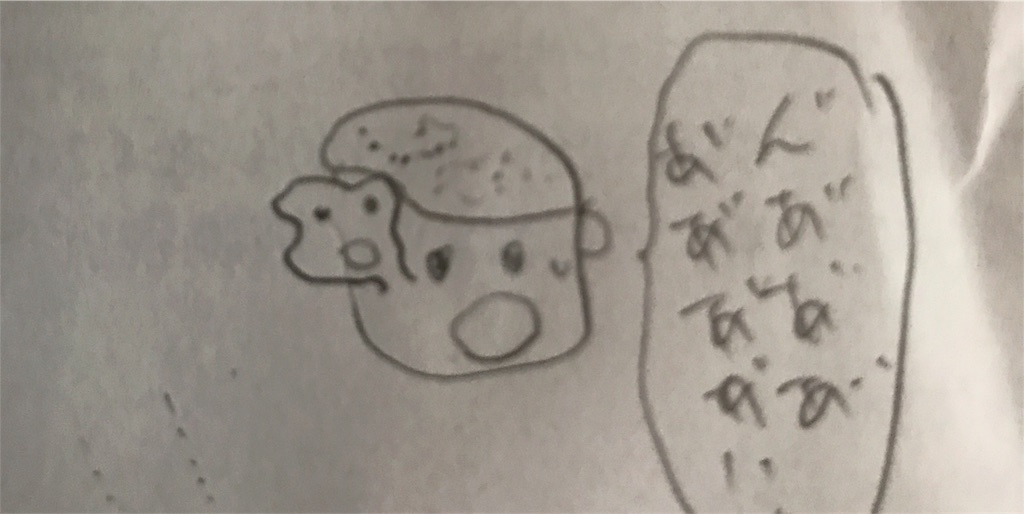 ん゛あ゛あ゛あ゛
あ゛あ゛あ゛あ゛い